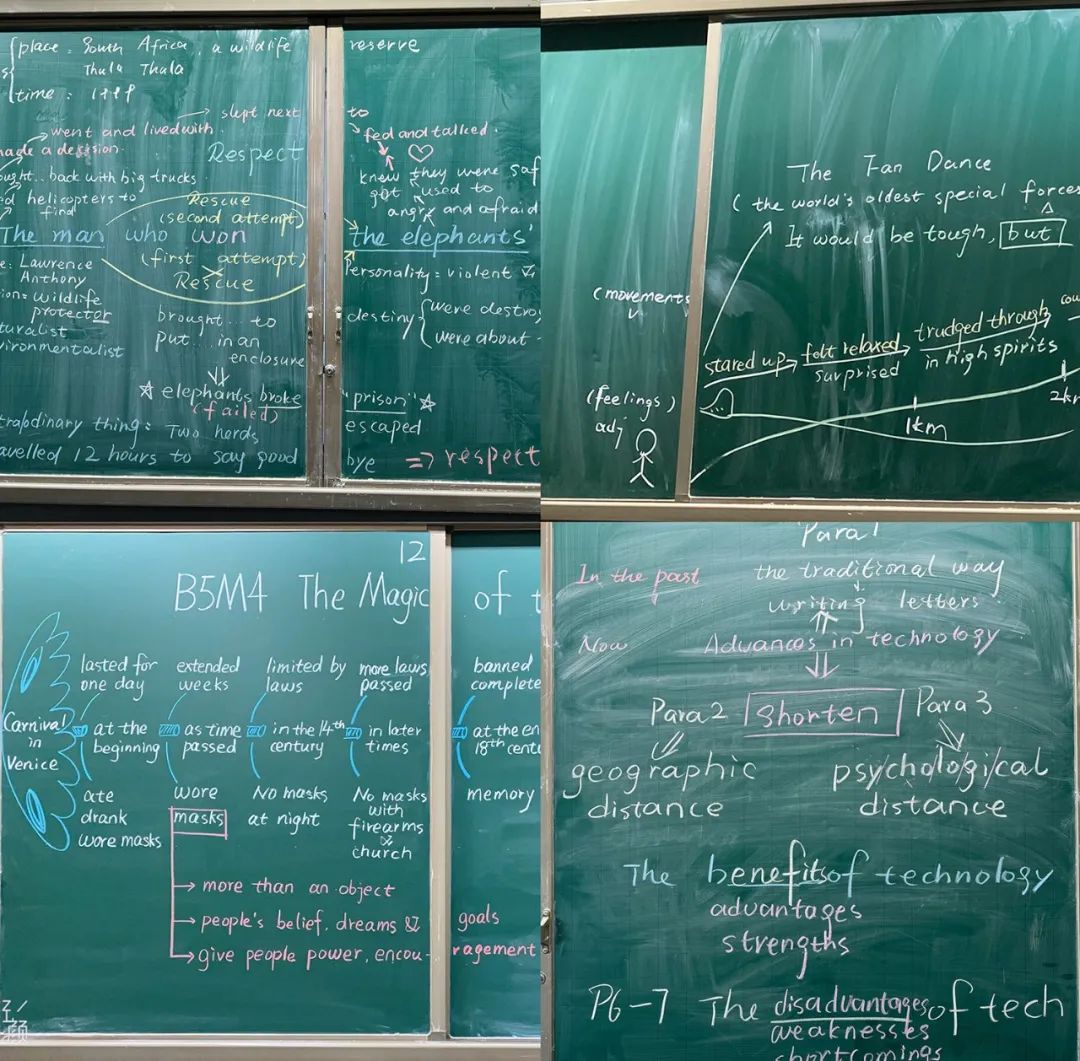 place: South Africa, a wildlife reserve
Thula Thula
time: 1999
slept next to
went and lived with
fed and talked.
made a decision
Respect
knew they were saf
back with big trucks
got used to
helicopters to
find
angry and afraid
Rescue
(second attempt)
The man who won the elephants'
(first attempt)
Rescue
Lawrence
Anthony
wildlife
protector
Personality: violent &
brought... to
put... in an
enclosure
destiny
were destroy
were about
elephants broke "prison"
(failed)
escaped
thing: Two herds
12 hours to say good bye ⇒ respect
The Fan Dance
(the world's oldest special forces
It would be tough, but
(movements
stared up
felt relaxed
surprised
trudged through
in high spirits
cou
(feelings)
adj
1km
2km
12
B5M4 The Magic of t
Carnival
in
Venice
lasted for
one day
extended
weeks
limited by
laws
more laws
passed
banned
complete
at the
beginning
as time
passed
in the 14th
century
in later
times
at the en
18th cent
ate
drank
wore masks
wore
masks
No masks
at night
No masks
with
firearms
&
church
memory
more than an object
people's belief, dreams & goals
give people power, encou-ragement
Para1
In the past
the traditional way
writing letters
Now
Advances in technology
Para2
Shorten
Para3
geographic
distance
psychological
distance
The benefits of technology
advantages
strengths
P6-7 The disadvantages of tech
weaknesses
shortcomings